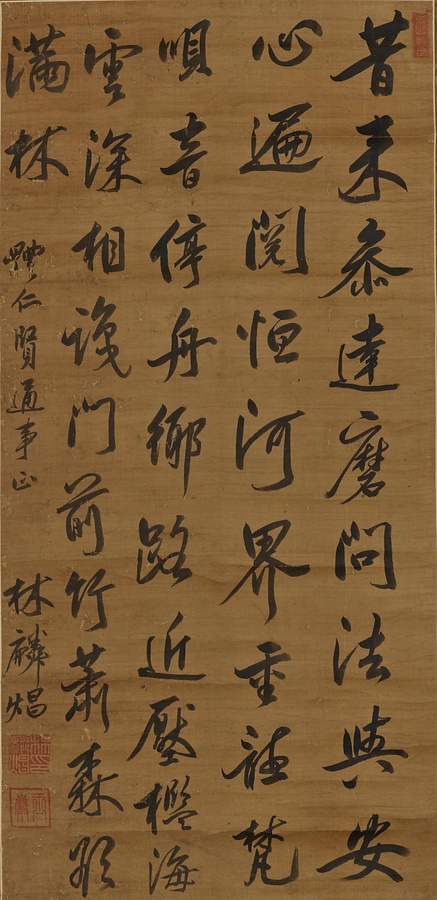 昔来叅達磨問法與安
心遍閱恒河界重梵
唄音停舟鄉路近壓檻海
雲深相識門前竹蕭森影
滿林
仁賢通事正
林麟焻